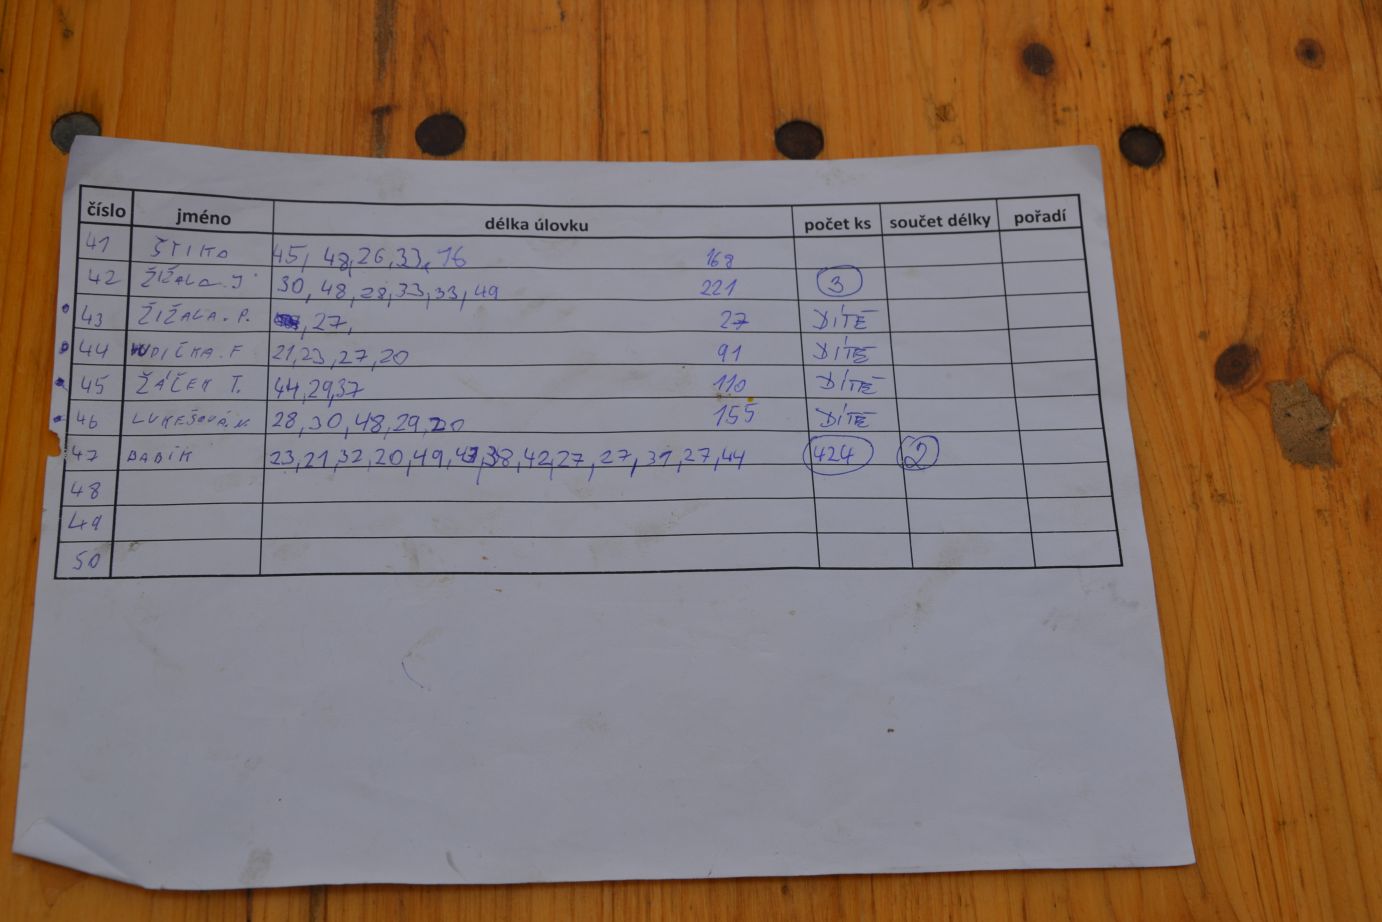 číslo jméno délka úlovku počet ks součet délky pořadí
41 ŠTIKA 45, 48, 26, 33, 16 168
42 ŽIŽALA. J 30, 48, 28, 33, 33, 49 221 3
43 ŽIŽALA. P. , 27, 27 DÍTĚ
44 UDIČKA. F 21, 23, 27, 20 91 DÍTĚ
45 ŽÁČEK T. 44, 29, 37 110 DÍTĚ
46 LUKEŠOVÁ N. 28, 30, 48, 29, 20 155 DÍTĚ
47 23, 21, 32, 20, 49, 43, 38, 42, 27, 27, 31, 27, 44 424 2
48
49
50